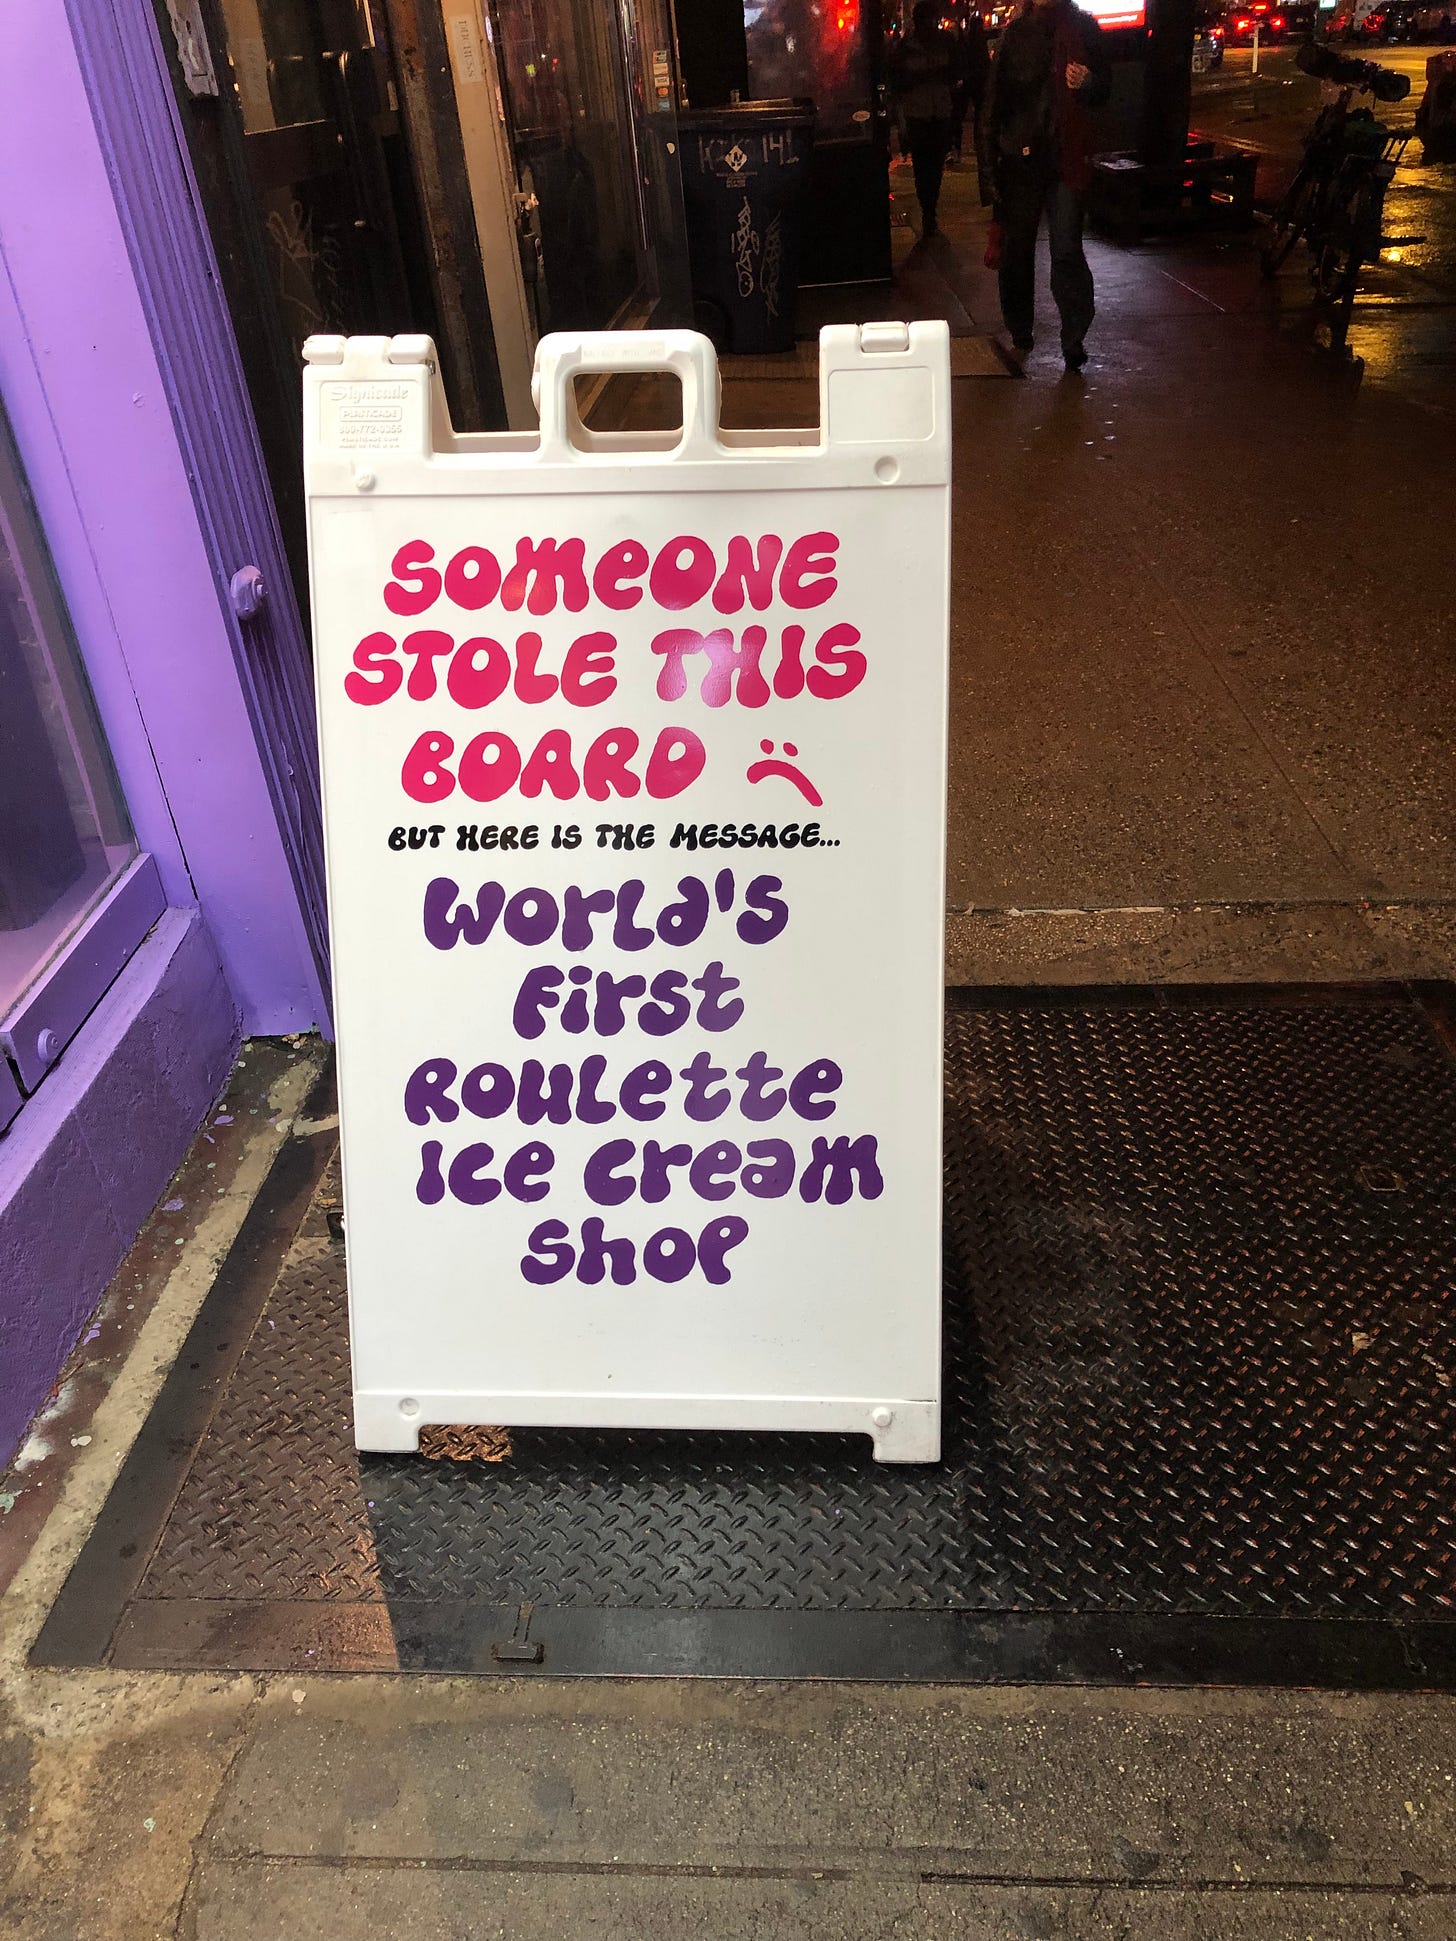 Signicade
PLASTICADE
800-772-0355
MADE IN THE U.S.A.
141
SOMEONE
STOLE THIS
BOARD :(
BUT HERE IS THE MESSAGE...
WORLD'S
First
Roulette
Ice cream
shop